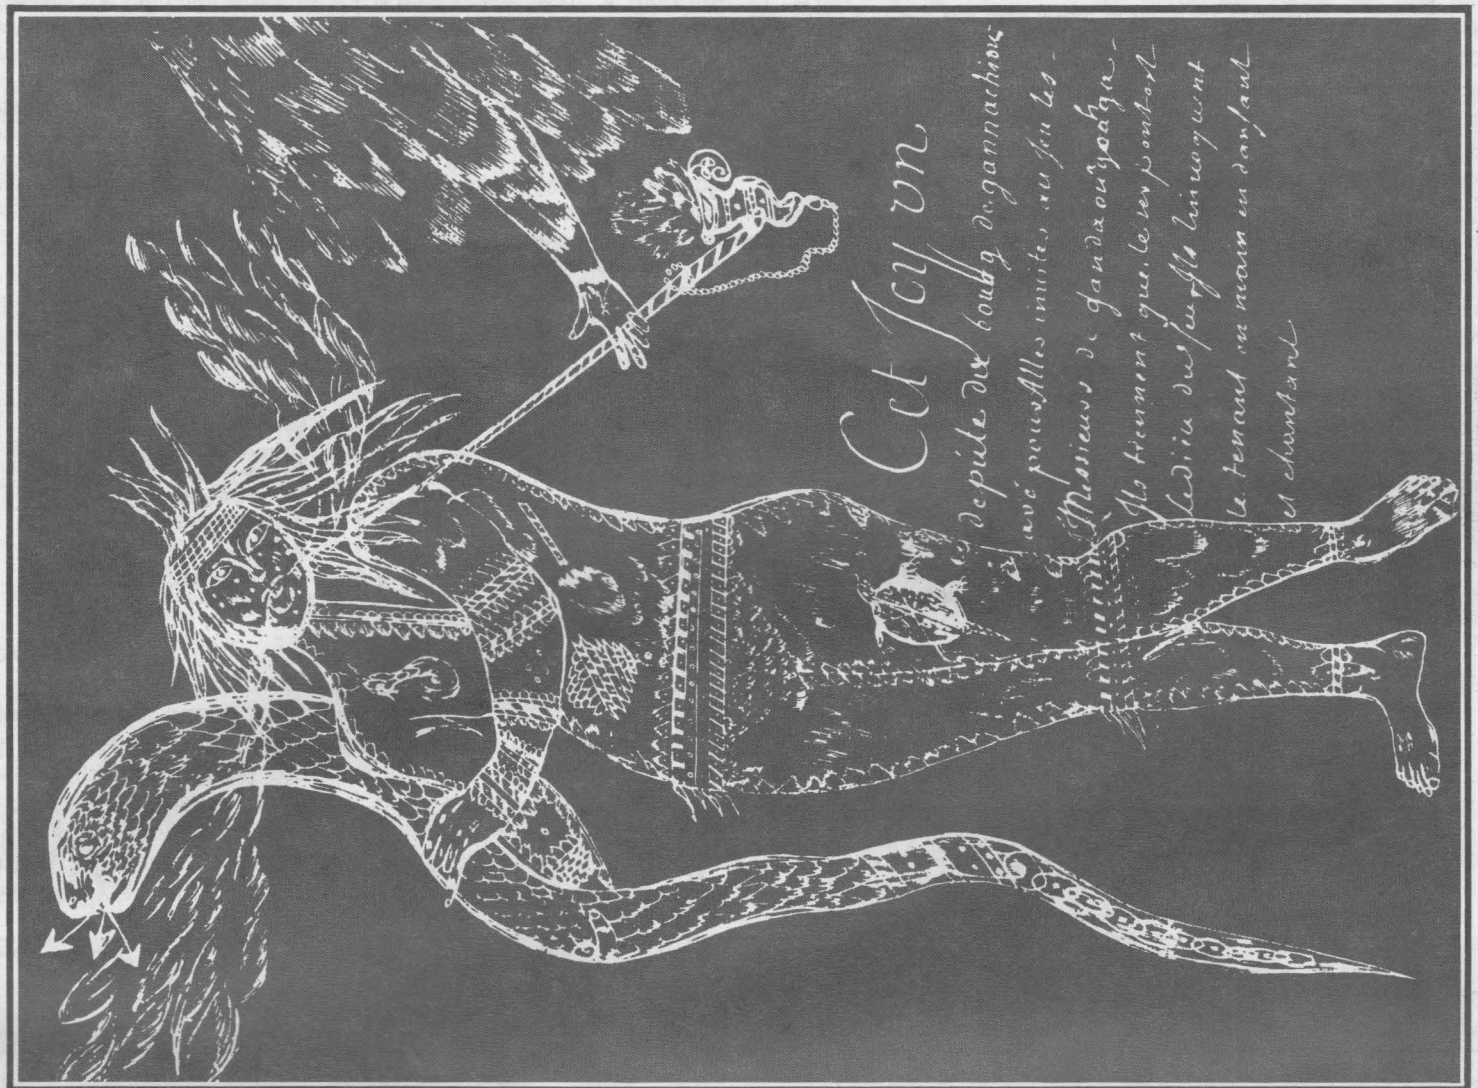 Cet Icy un
depute du bourg de gannachiou
avé pour aller inuiter au Jeu les
Messieurs de gandaouagué
Ils tiennent que le serpent est
le dieu du feu Ils linuoquent
le tenant en main en dansant
et chantant